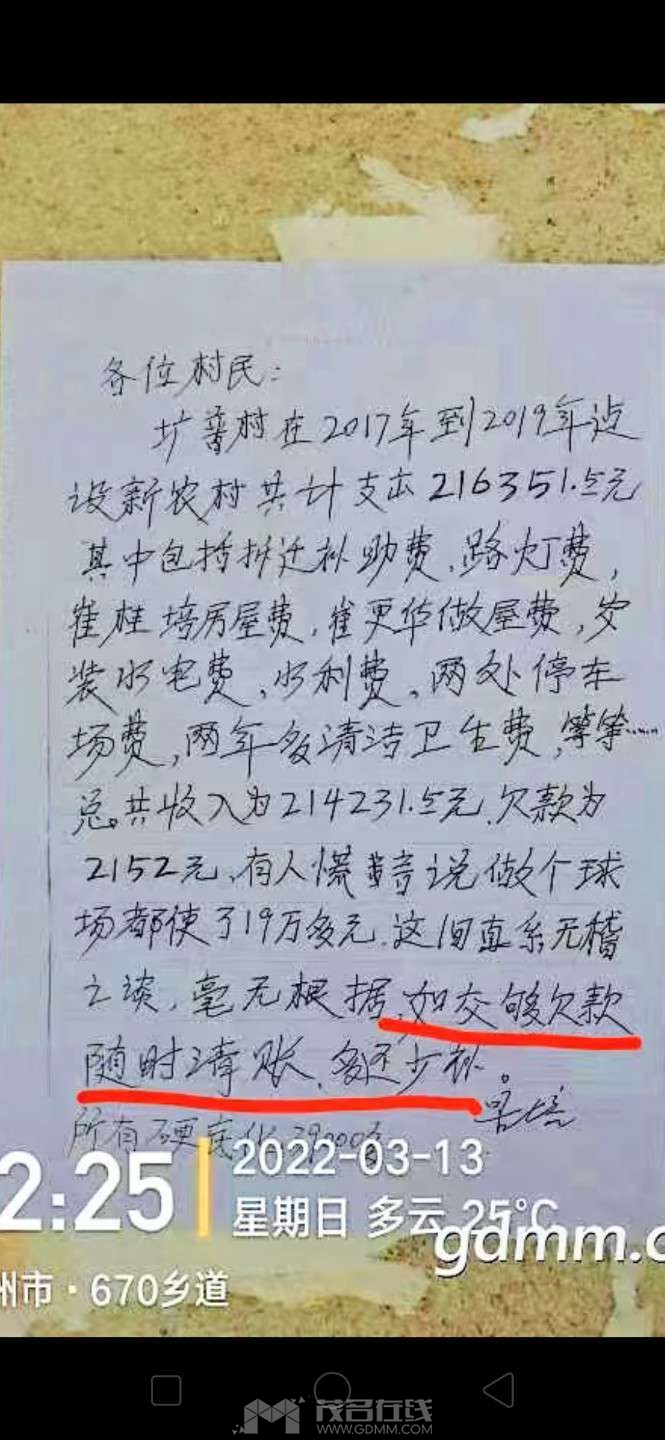 各位村民:
圹普村在2017年到2019年
设新农村共计支出216351.5元
其中包括拆迁补助费、路灯费,
崔桂培房屋费,崔更华做屋费,安
装水电费、水利费、两处停车
场费,两年多清洁卫生费,等等……
总共收入为214231.5元.欠款为
2152元、有人慌 说做个球
场都使了19万多元.这旧直系无稽
之谈,毫无根据,如交够欠款
随时清账、多还少补。
所有硬底化39000多
2:25
2022-03-13
星期日 多云 25°C
gdmm.c
州市·670乡道
茂名在线
WWW.GDMM.COM